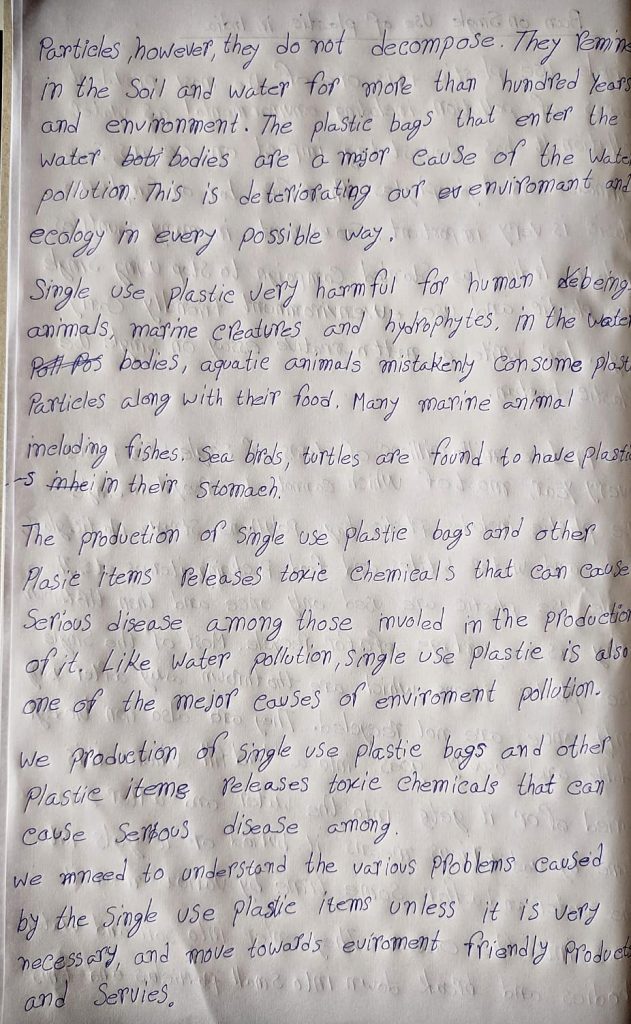 Particles, however, they do not decompose. They Remine
in the Soil and water for more than hundred Years
and environment. The plastic bags that enter the
water bobi bodies are a mjor cause of the Water
pollution. This is deteriorating our ev enviromant and
ecology in every possible way.
Single use plastic very harmful for human debeing.
animals, marine creatures and hydrophytes, in the water
Poll Pos bodies, aquatic animals mistakenly consume plast
Particles along with their food. Many marine animal
including fishes. Sea birds, turtles are found to have plastic
-s inhei in their stomach.
The production of Single use plastic bags and other
Plasic items releases toxic chemicals that can cause
Serious disease among those involed in the production
of it. Like water pollution, Single use plastic is also
one of the mejor causes of enviroment pollution.
We production of Single use plastic bags and other
Plastic items releases toxic chemicals that can
cause Serious disease among.
We mneed to understand the various problems caused
by the Single use plastic items unless it is very
necessary, and move towards eviroment friendly Product
and Servies.